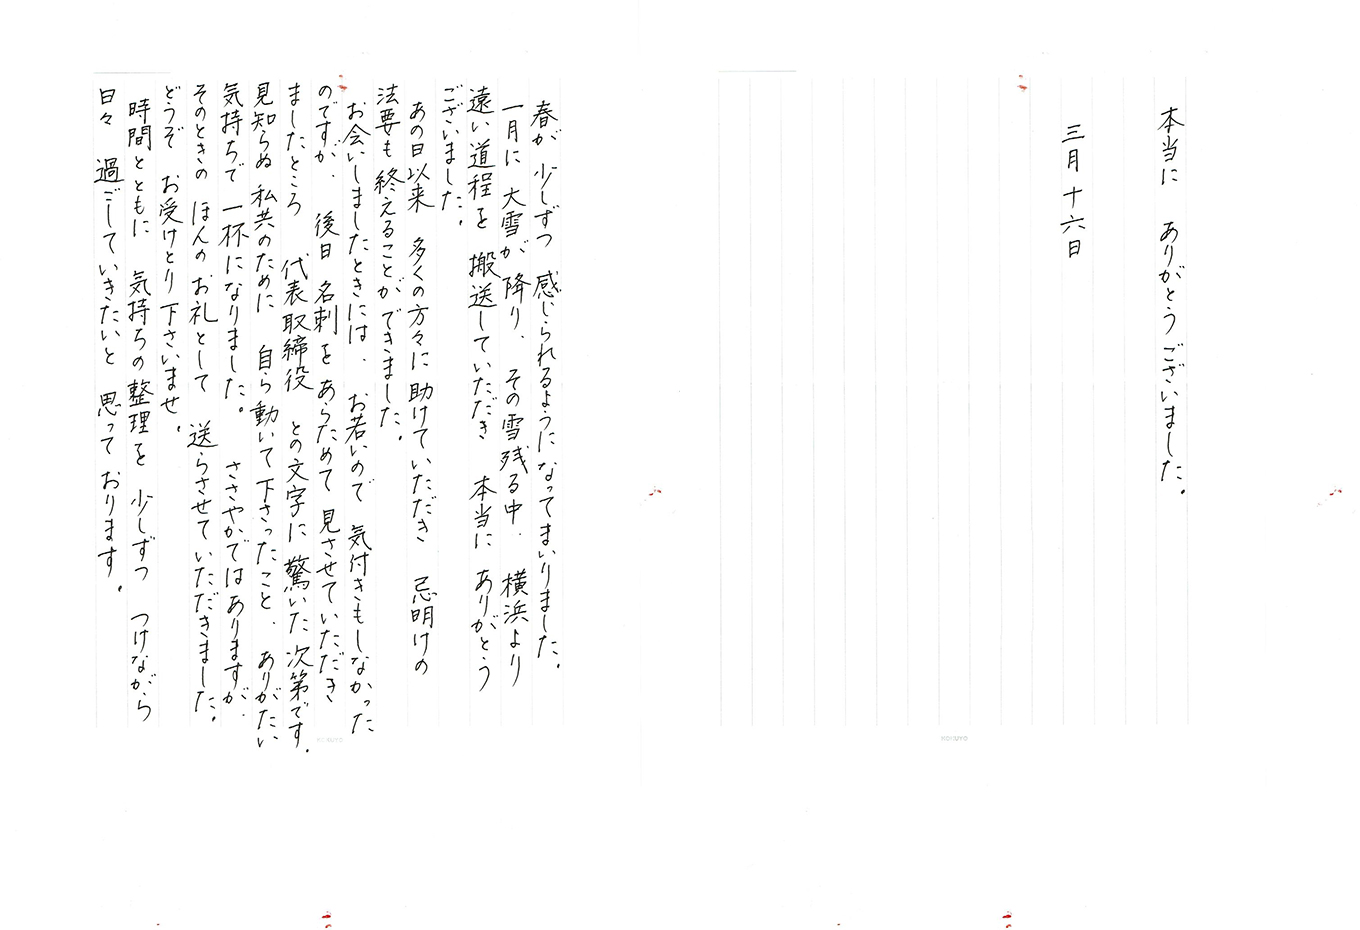 春が 少しずつ 感じられるようになってまいりました。
一月に 大雪が降り、その雪残る中、横浜より
遠い道程を 搬送していただき 本当に ありがとう
ございました。
あの日以来 多くの方々に助けていただき 忌明けの
法要も終えることができました。
お会いしましたときには、お若いので 気付きもしなかった
のですが、後日 名刺を あらためて 見させていただき
ましたところ 代表取締役 との文字に 驚いた次第です。
見知らぬ 私共のために 自ら動いて下さったこと、ありがたい
気持ちで 一杯になりました。ささやかではありますが、
そのときの ほんの お礼として 送らさせていただきました。
どうぞ お受けとり下さいませ。
時間とともに 気持ちの整理を 少しずつ つけながら
日々 過ごしていきたいと 思っております。
本当に ありがとうございました。
三月十六日
KOKUYO
KOKUYO